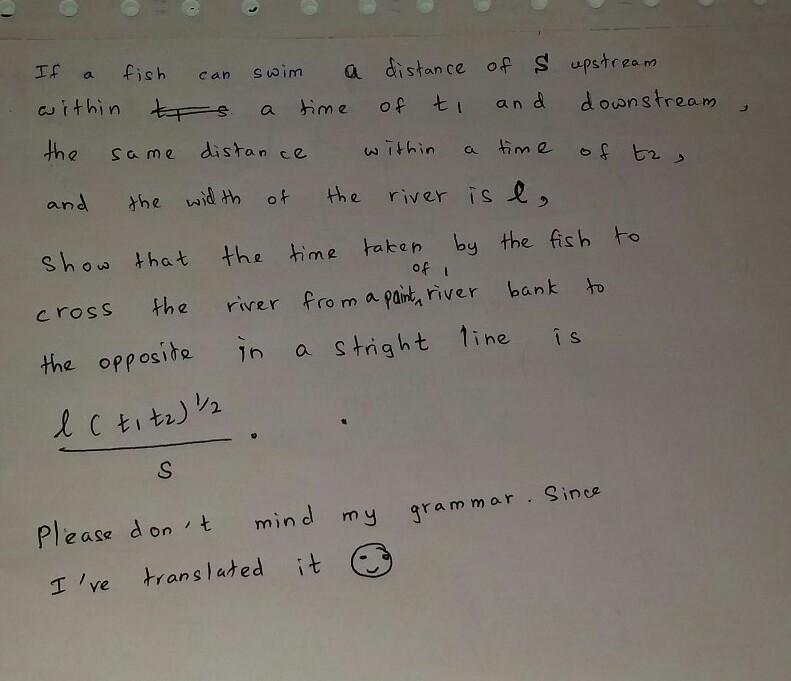 If a fish can swim a distance of S upstream
within t1 s a time of t1 and downstream,
the same distance within a time of t2,
and the width of the river is l,
show that the time taken by the fish to
cross the river from a paint of 1 river bank to
the opposite in a stright line is
l (t1 t2)^1/2
S
.
Please don't mind my grammar. Since
I've translated it